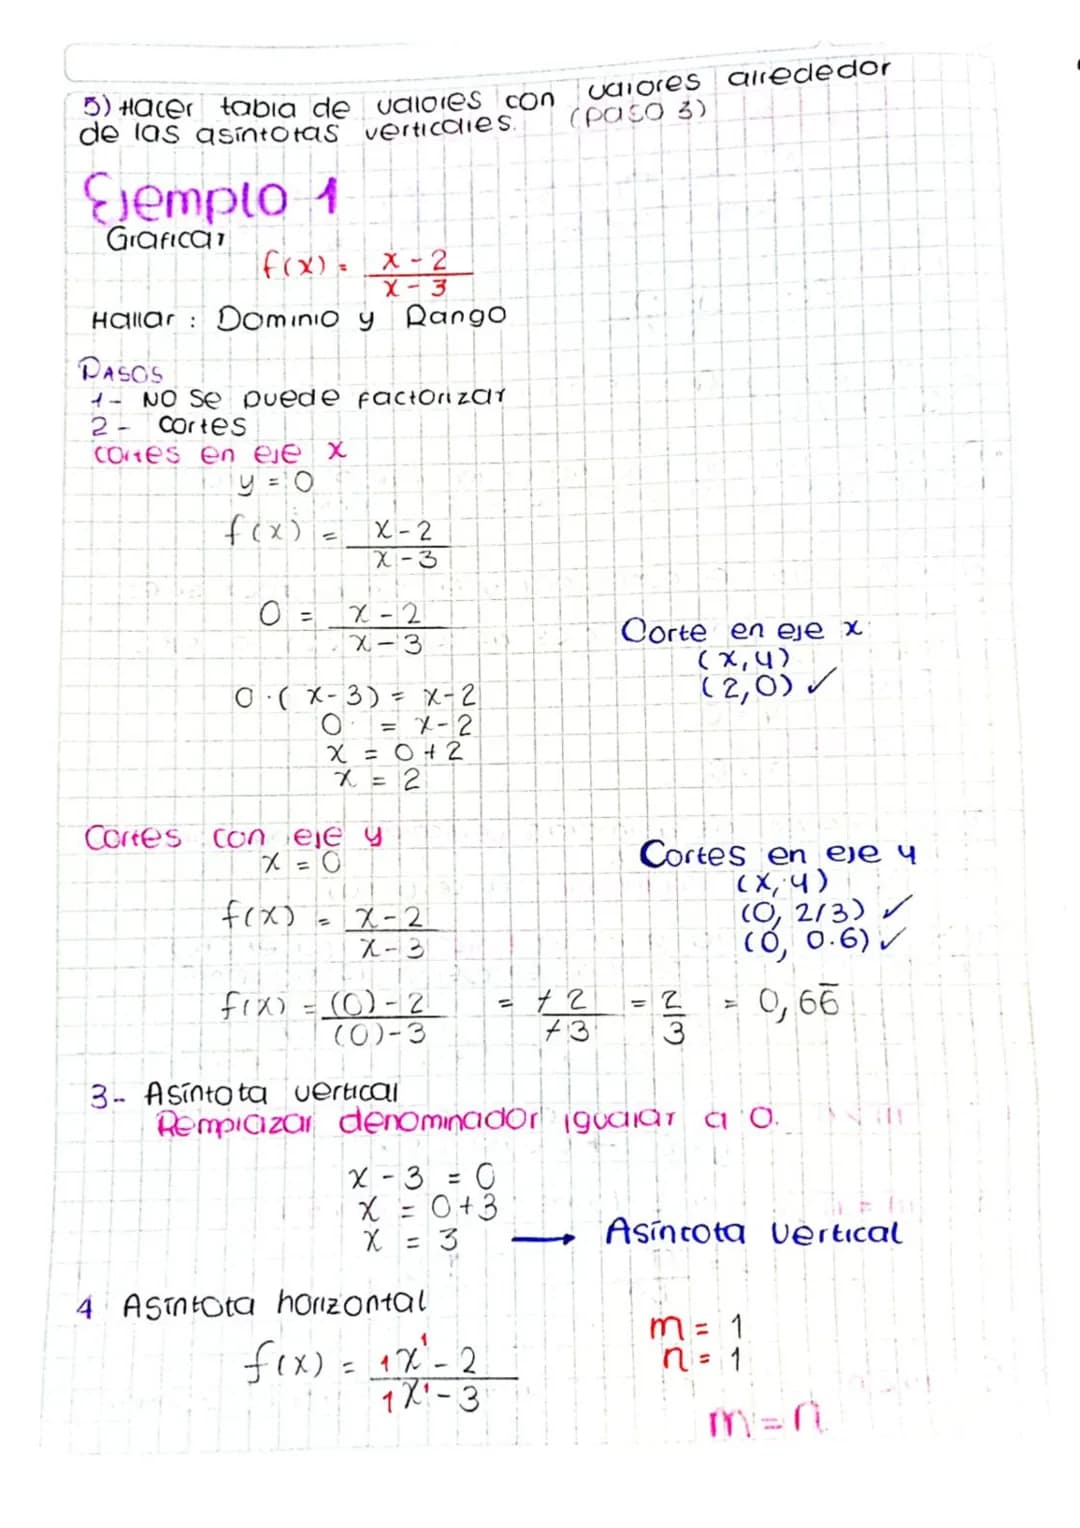 5) Hacer tabla de valores con valores alrededor
de las asíntotas verticales. (paso 3)
Ejemplo 1
Graficar
f(x) = x - 2 / x - 3
Hallar : Dominio y Rango
PASOS
1- NO se puede factorizar
2- cortes
cortes en eje x
y = 0
f(x) = x - 2 / x - 3
0 = x - 2 / x - 3
Corte en eje x
(x, y)
(2,0) ✓
0 · (x - 3) = x - 2
0 = x - 2
x = 0 + 2
x = 2
Cortes con eje y
x = 0
Cortes en eje y
(x, y)
(0, 2/3) ✓
(0, 0.6) ✓
f(x) = x - 2 / x - 3
f(x) = (0) - 2 / (0) - 3 = +2 / +3 = 2 / 3 = 0,66̅
3- Asíntota vertical
Remplazar denominador igualar a 0.
x - 3 = 0
x = 0 + 3
x = 3 → Asíntota vertical
4 Asíntota horizontal
f(x) = 1x¹ - 2 / 1x¹ - 3
m = 1
n = 1
m = n